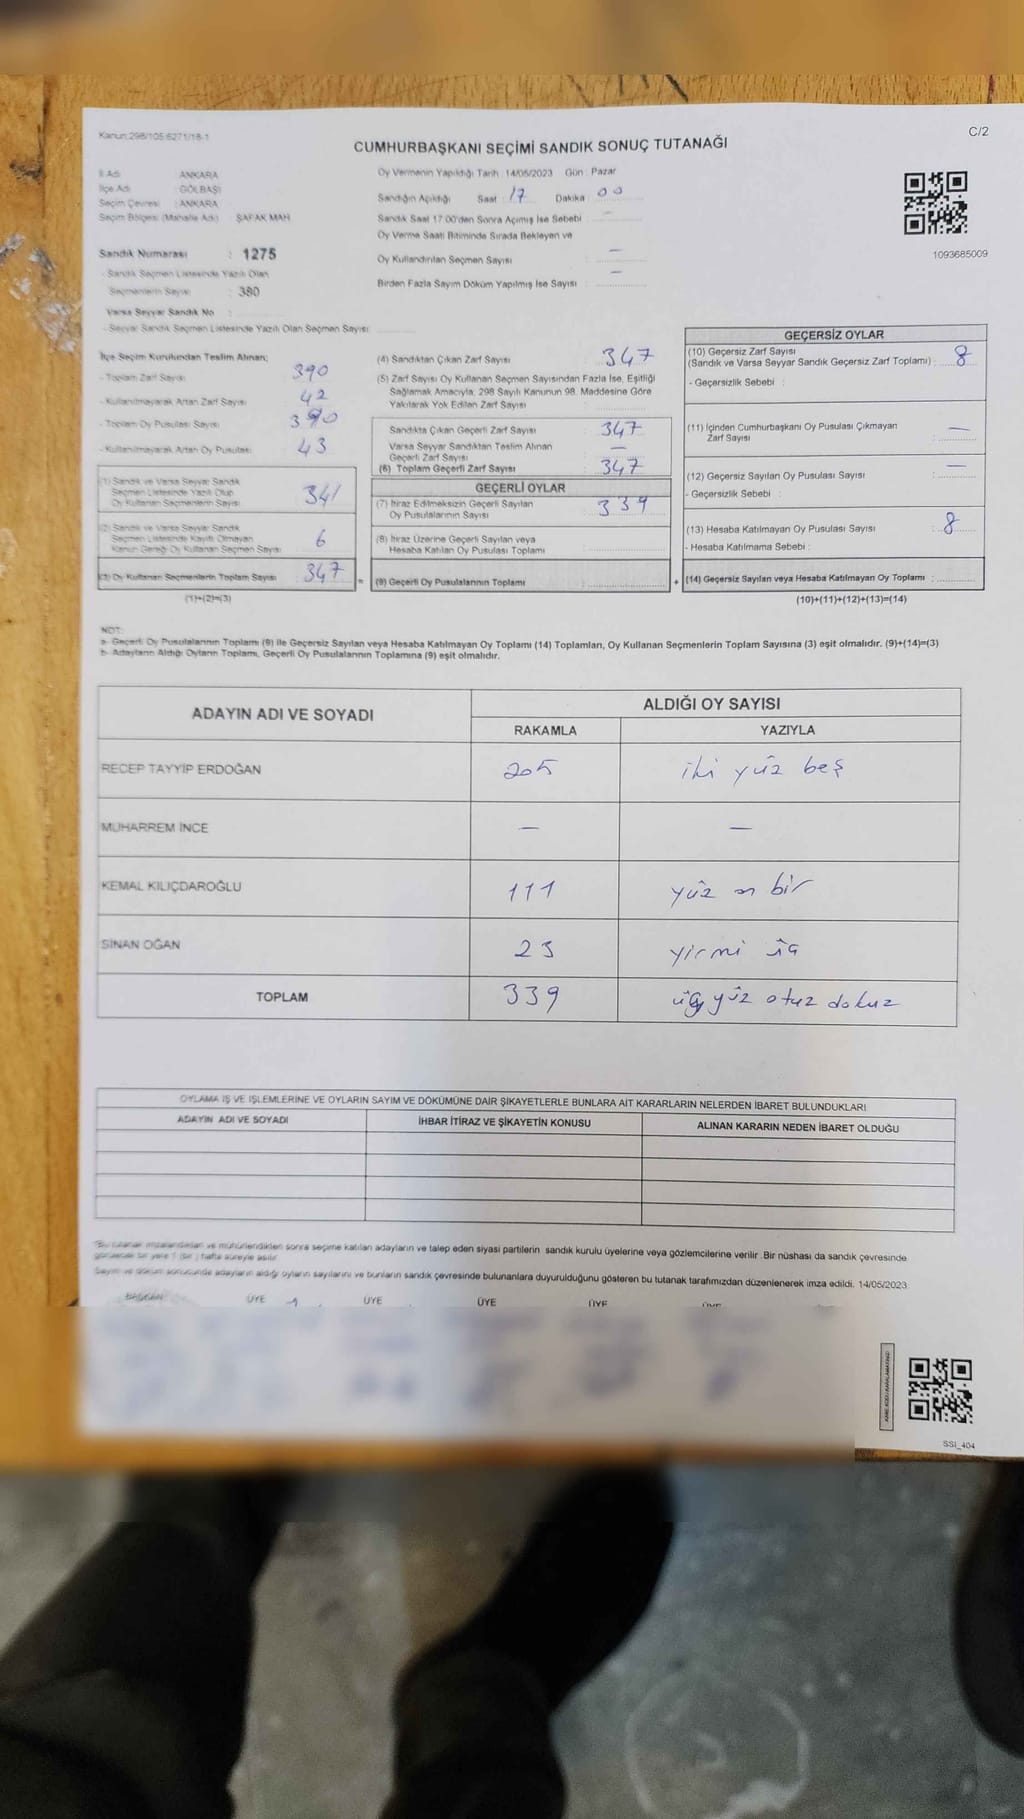 Kanun:298/105 6271/18-1
C/2
CUMHURBAŞKANI SEÇİMİ SANDIK SONUÇ TUTANAĞI
İl Adı : ANKARA
İlçe Adı : GÖLBAŞI
Seçim Çevresi : ANKARA
Seçim Bölgesi (Mahalle Adı) : ŞAFAK MAH
Sandık Numarası : 1275
- Sandık Seçmen Listesinde Yazılı Olan
Seçmenlerin Sayısı : 380
Varsa Seyyar Sandık No :
- Seyyar Sandık Seçmen Listesinde Yazılı Olan Seçmen Sayısı:
Oy Vermenin Yapıldığı Tarih :14/05/2023 Gün : Pazar
Sandığın Açıldığı Saat : 17 Dakika : 00
Sandık Saat 17:00'den Sonra Açılmış İse Sebebi : —
Oy Verme Saati Bitiminde Sırada Bekleyen ve
Oy Kullandırılan Seçmen Sayısı : —
Birden Fazla Sayım Döküm Yapılmış İse Sayısı : —
1093685009
İlçe Seçim Kurulundan Teslim Alınan;
- Toplam Zarf Sayısı 390
- Kullanılmayarak Artan Zarf Sayısı 42
- Toplam Oy Pusulası Sayısı 390
- Kullanılmayarak Artan Oy Pusulası 43
(1) Sandık ve Varsa Seyyar Sandık
Seçmen Listesinde Yazılı Olup
Oy Kullanan Seçmenlerin Sayısı 341
(2) Sandık ve Varsa Seyyar Sandık
Seçmen Listesinde Kayıtlı Olmayan
Kanun Gereği Oy Kullanan Seçmen Sayısı 6
(3) Oy Kullanan Seçmenlerin Toplam Sayısı 347
(1)+(2)=(3)
(4) Sandıktan Çıkan Zarf Sayısı 347
(5) Zarf Sayısı Oy Kullanan Seçmen Sayısından Fazla İse, Eşitliği
Sağlamak Amacıyla, 298 Sayılı Kanunun 98. Maddesine Göre
Yakılarak Yok Edilen Zarf Sayısı
Sandıkta Çıkan Geçerli Zarf Sayısı 347
Varsa Seyyar Sandıktan Teslim Alınan
Geçerli Zarf Sayısı —
(6) Toplam Geçerli Zarf Sayısı 347
GEÇERLİ OYLAR
(7) İtiraz Edilmeksizin Geçerli Sayılan
Oy Pusulalarının Sayısı 339
(8) İtiraz Üzerine Geçerli Sayılan veya
Hesaba Katılan Oy Pusulası Toplamı
= (9) Geçerli Oy Pusulalarının Toplamı
GEÇERSİZ OYLAR
(10) Geçersiz Zarf Sayısı
(Sandık ve Varsa Seyyar Sandık Geçersiz Zarf Toplamı) : 8
- Geçersizlik Sebebi :
(11) İçinden Cumhurbaşkanı Oy Pusulası Çıkmayan
Zarf Sayısı : —
(12) Geçersiz Sayılan Oy Pusulası Sayısı : —
- Geçersizlik Sebebi :
(13) Hesaba Katılmayan Oy Pusulası Sayısı : 8
- Hesaba Katılmama Sebebi :
+ (14) Geçersiz Sayılan veya Hesaba Katılmayan Oy Toplamı :
(10)+(11)+(12)+(13)=(14)
NOT:
a- Geçerli Oy Pusulalarının Toplamı (9) ile Geçersiz Sayılan veya Hesaba Katılmayan Oy Toplamı (14) Toplamları, Oy Kullanan Seçmenlerin Toplam Sayısına (3) eşit olmalıdır. (9)+(14)=(3)
b- Adayların Aldığı Oyların Toplamı, Geçerli Oy Pusulalarının Toplamına (9) eşit olmalıdır.
ADAYIN ADI VE SOYADI ALDIĞI OY SAYISI
RAKAMLA YAZIYLA
RECEP TAYYİP ERDOĞAN 205 iki yüz beş
MUHARREM İNCE — —
KEMAL KILIÇDAROĞLU 111 yüz on bir
SİNAN OĞAN 23 yirmi üç
TOPLAM 339 üç yüz otuz dokuz
OYLAMA İŞ VE İŞLEMLERİNE VE OYLARIN SAYIM VE DÖKÜMÜNE DAİR ŞİKAYETLERLE BUNLARA AİT KARARLARIN NELERDEN İBARET BULUNDUKLARI
ADAYIN ADI VE SOYADI İHBAR İTİRAZ VE ŞİKAYETİN KONUSU ALINAN KARARIN NEDEN İBARET OLDUĞU
*Bu tutanak imzalandıktan ve mühürlendikten sonra seçime katılan adayların ve talep eden siyasi partilerin sandık kurulu üyelerine veya gözlemcilerine verilir. Bir nüshası da sandık çevresinde
görülecek bir yere 1 (bir) hafta süreyle asılır.
Sayım ve döküm sonucunda adayların aldığı oyların sayılarını ve bunların sandık çevresinde bulunanlara duyurulduğunu gösteren bu tutanak tarafımızdan düzenlenerek imza edildi. 14/05/2023
BAŞKAN ÜYE ÜYE ÜYE ÜYE ÜYE
SSI_404